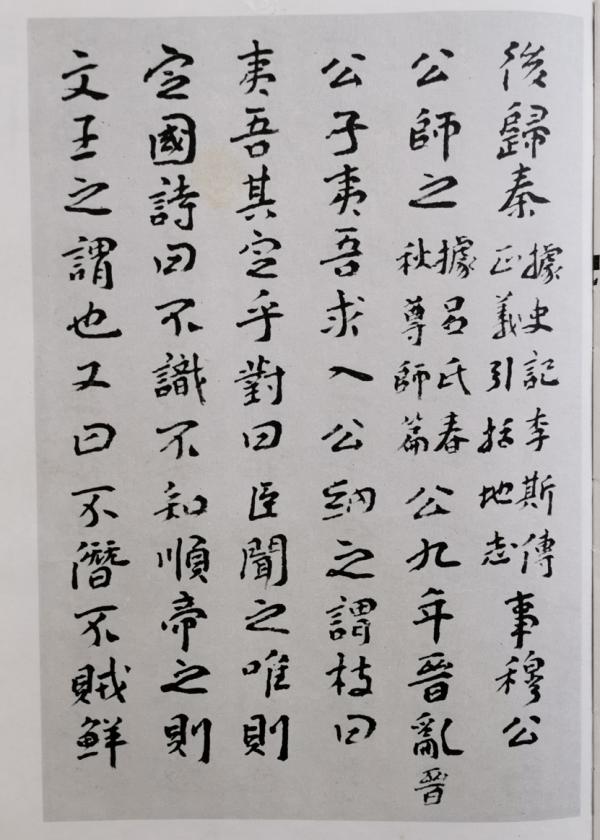 後歸秦據史記李斯傳正義引括地志事穆公
公師之據呂氏春秋尊師篇公九年晉亂晉
公子夷吾求入公納之謂枝曰
夷吾其定乎對曰臣聞之唯則
定國詩曰不識不知順帝之則
文王之謂也又曰不僭不賊鮮